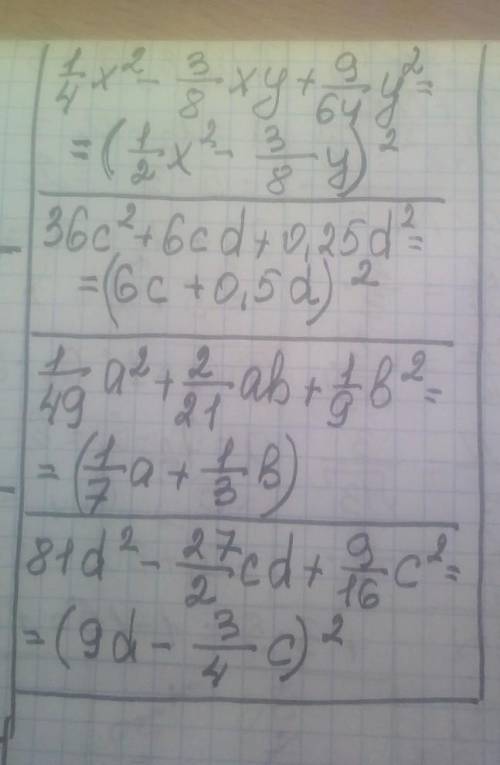 1/4 x² - 3/8 xy + 9/64 y² =
= (1/2 x² - 3/8 y)²
36c² + 6cd + 0,25d² =
= (6c + 0,5d)²
1/49 a² + 2/21 ab + 1/9 b² =
= (1/7 a + 1/3 b)
81d² - 27/2 cd + 9/16 c² =
= (9d - 3/4 c)²